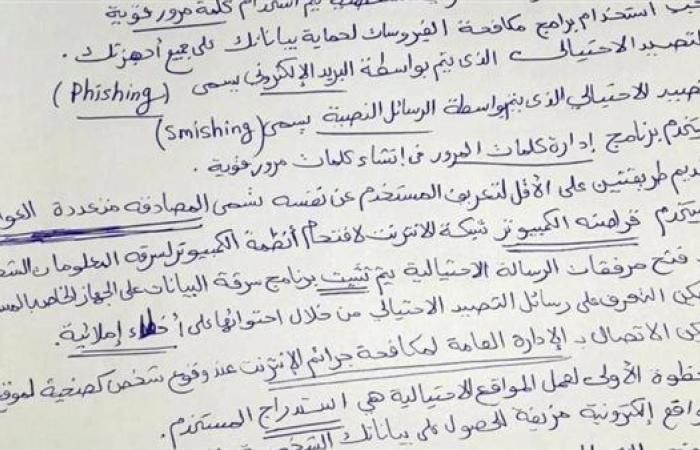 يتم استخدام كلمة مرور قوية
يجب استخدام برامج مكافحة الفيروسات لحماية بياناتك على جميع أجهزتك.
التصيد الاحتيالي الذي يتم بواسطة البريد الإلكتروني يسمى (Phishing)
تصيد الاحتيالي الذي يتم بواسطة الرسائل النصية يسمى (Smishing)
يستخدم برنامج إدارة كلمات المرور في إنشاء كلمات مرور قوية.
طريقتين على الأقل لتعريف المستخدم عن نفسه تسمى المصادقه متعددة
يستخدم قراصنه الكمبيوتر شبكة الانترنت لاقتحام أنظمة الكمبيوتر لسرقه المعلومات
فتح مرفقات الرسالة الاحتيالية يتم تثبيت برنامج سرقة البيانات على الجهاز الخاص
التعرف على رسائل التصيد الاحتيالي من خلال احتوائها على أخطاء إملائية.
الاتصال بـ الإدارة العامة لمكافحة جرائم الإنترنت عند وقوع شخص كضحية
خطوة الأولى لعمل المواقع الاحتيالية هي استدراج المستخدم.
إلكترونية مزيفة للحصول على بياناتك